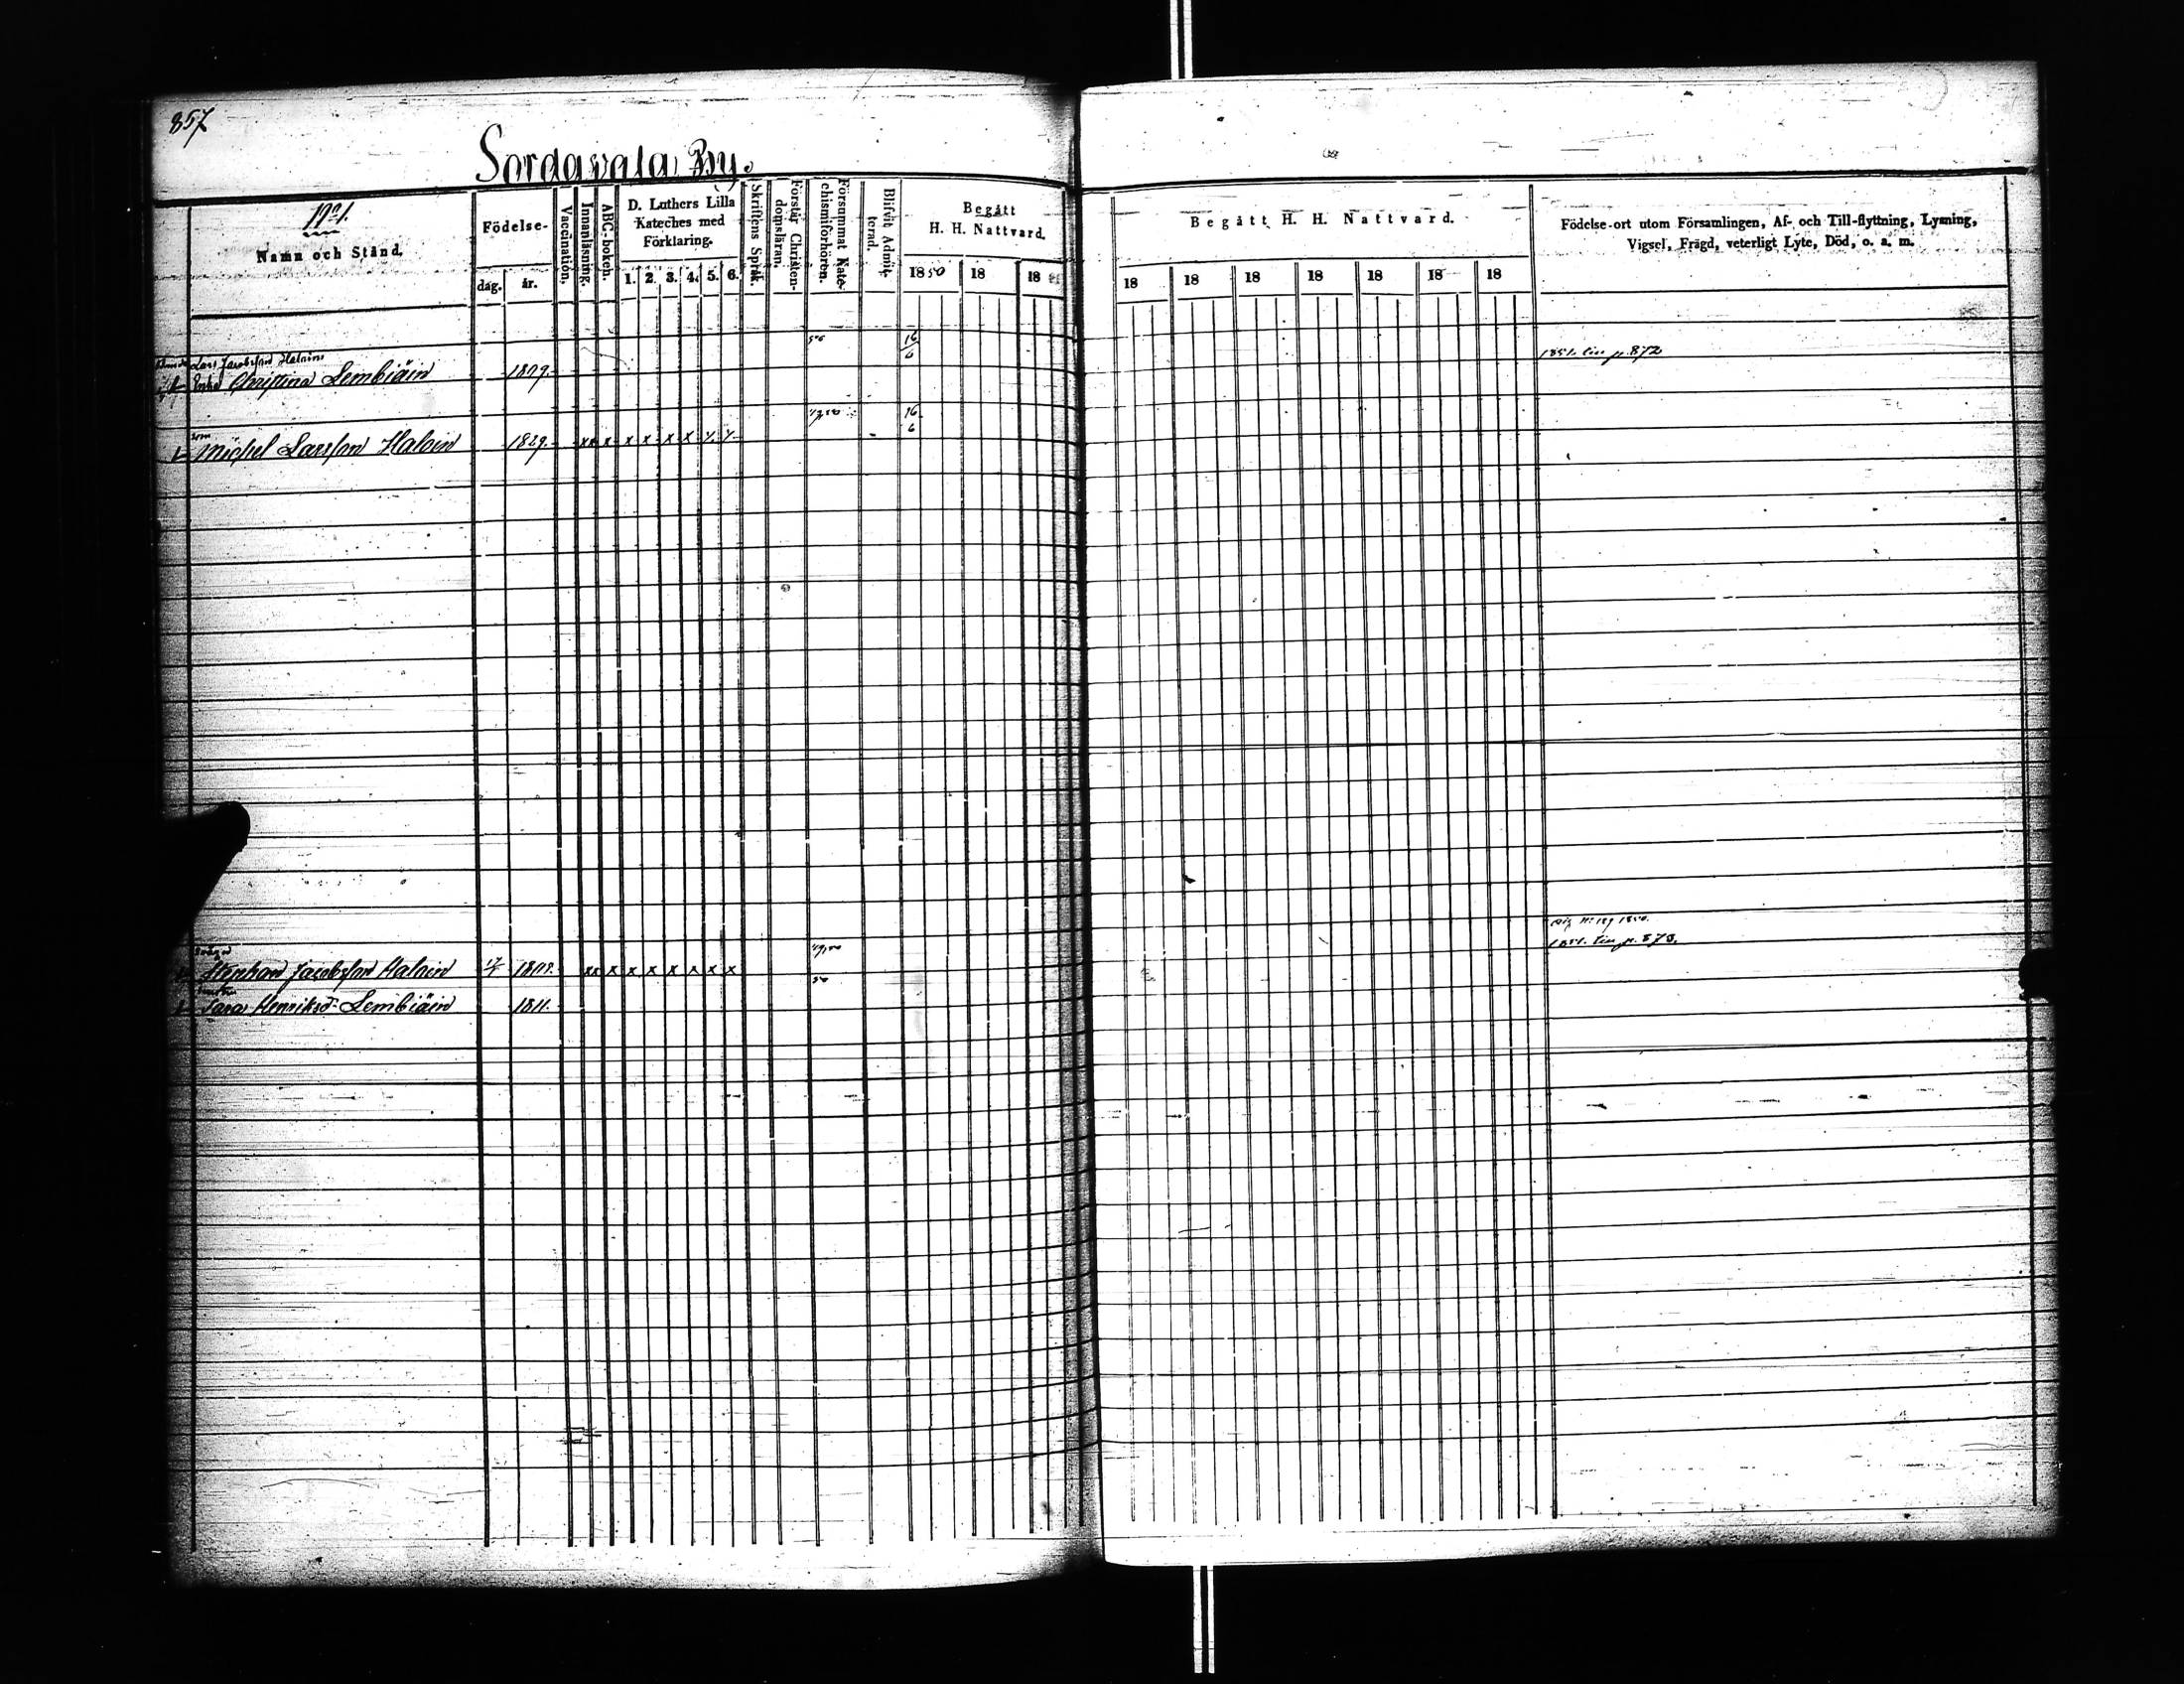 857
Sordavala By.
No 1.
Namn och Stånd.
Födelse-
dag. år.
Vaccination.
Innanläsning.
ABC-boken.
D. Luthers Lilla
Kateches med
Förklaring.
1. 2. 3. 4. 5. 6.
Skriftens Språk.
Förstår Christen-
domsläran.
Försummat Kate-
chismiförhören.
Blifvit Admit-
terad.
Begått
H. H. Nattvard.
1850 18 18
Begått H. H. Nattvard.
18 18 18 18 18 18 18
Födelse-ort utom Församlingen, Af- och Till-flyttning, Lysning,
Vigsel, Frägd, veterligt Lyte, Död, o. a. m.
Lars Jacobsson Haloins
Enka Christina Lembiäin 1809. 16/6 1851. p. 872
son
Michel Larsson Haloin 1829. xx x x x x x 16/6
1850.
1851. p. 873.
Stephan Jacobsson Haloin 1808. xx x x x x x x x 49,50
hustru
Sara Henriksd. Lembiäin 1811. 50